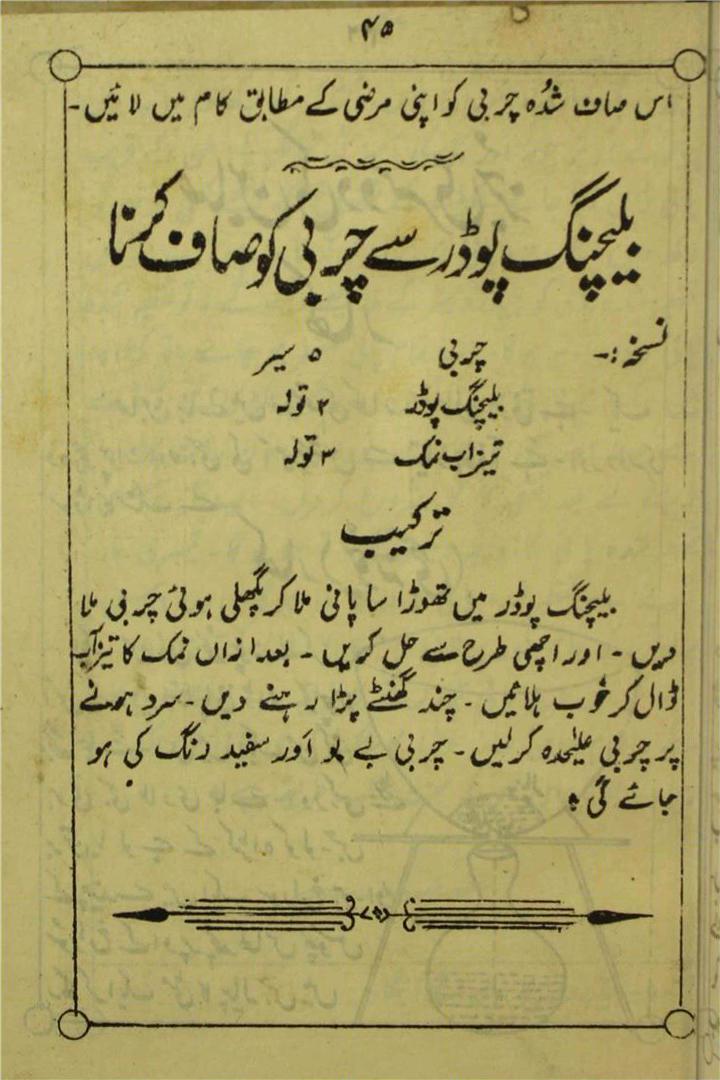 ۴۵
اس صاف شدہ چربی کو اپنی مرضی کے مطابق کام میں لائیں۔
بلیچنگ پوڈر سے چربی کو صاف کرنا
نسخہ:۔ چربی ۵ سیر
بلیچنگ پوڈر ۲ تولہ
تیزاب نمک ۳ تولہ
ترکیب
بلیچنگ پوڈر میں تھوڑا سا پانی ملا کر پگھلی ہوئی چربی ملا
دیں۔ اور اچھی طرح سے حل کریں۔ بعد ازاں نمک کا تیزاب
ڈال کر خوب ہلائیں۔ چند گھنٹے پڑا رہنے دیں۔ سرد ہونے
پر چربی علیٰحدہ کرلیں۔ چربی بے بو اور سفید رنگ کی ہو
جائے گی؞